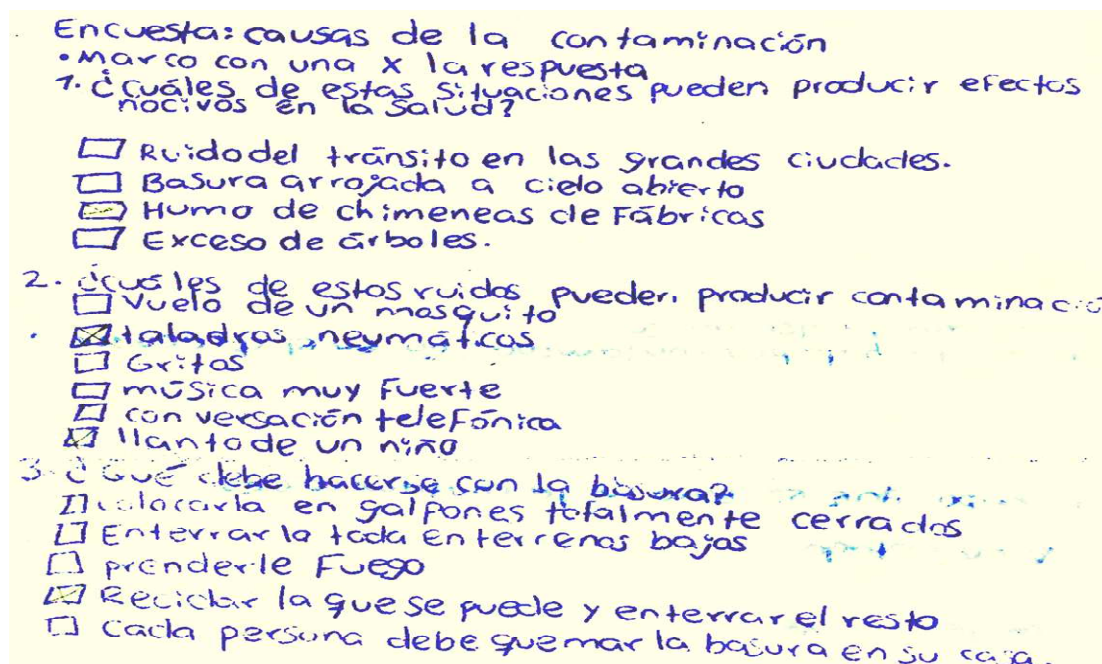 Encuesta: causas de la contaminación
• Marco con una x la respuesta
1. ¿cuáles de estas situaciones pueden producir efectos
nocivos en la salud?
Ruido del tránsito en las grandes ciudades.
Basura arrojada a cielo abierto
Humo de chimeneas de Fábricas
Exceso de árboles.
2. ¿cuáles de estos ruidos pueden producir contaminació
Vuelo de un mosquito
taladros neumáticos
Gritos
música muy Fuerte
conversación teleFónica
llanto de un niño
3. ¿Qué debe hacerse con la basura?
colocarla en galpones totalmente cerrados
Enterrarla toda en terrenos bajos
prenderle Fuego
Reciclar la que se puede y enterrar el resto
Cada persona debe quemar la basura en su casa.